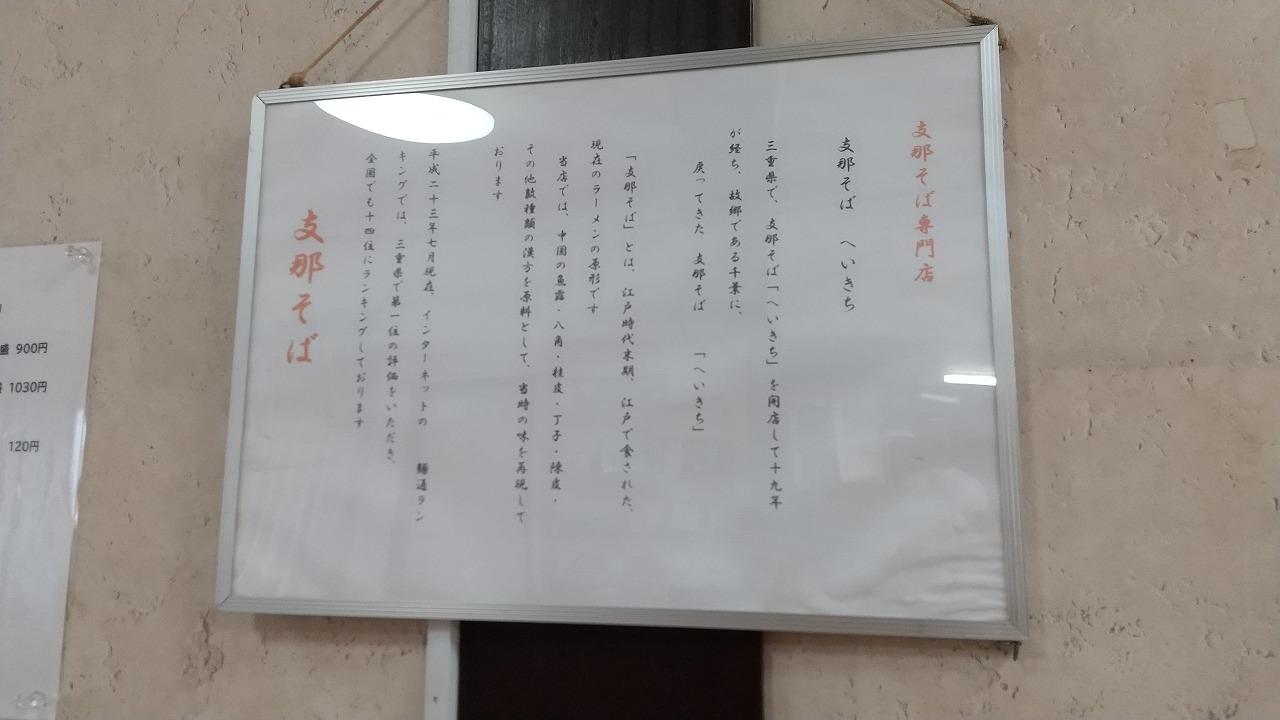 支那そば専門店
支那そば　へいきち
三重県で、支那そば「へいきち」を開店して十九年
が経ち、故郷である千葉に、
戻ってきた　支那そば　「へいきち」
「支那そば」とは、江戸時代末期、江戸で食された、
現在のラーメンの原形です
当店では、中国の魚露・八角・桂皮・丁子・陳皮・
その他数種類の漢方を原料として、当時の味を再現して
おります
平成二十三年七月現在、インターネットの　麺通ラン
キングでは、三重県で第一位の評価をいただき、
全国でも十四位にランキングしております
支那そば
盛 900円
1030円
120円